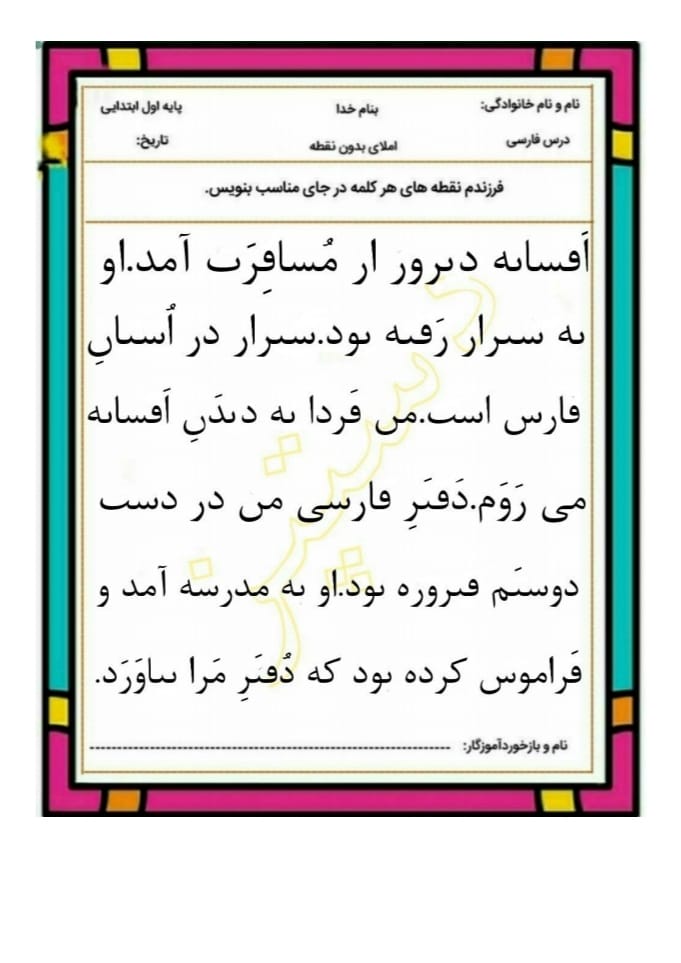 نام و نام خانوادگی: بنام خدا پایه اول ابتدایی
درس فارسی املای بدون نقطه تاریخ:
فرزندم نقطه های هر کلمه در جای مناسب بنویس.
اَڡساٮه دٮرور ار مُساڡِرَٮ آمد.او
ٮه سٮرار رَڡٮه ٮود.سٮرار در اُسٮاںِ
ڡارس اسٮ.مں ڡَردا ٮه دٮدَںِ اَڡساٮه
می رَوَم.دَڡٮَرِ ڡارسی مں در دسٮ
دوسٮَم ڡٮروره ٮود.او ٮه مدرسه آمد و
ڡَراموس کرده ٮود که دُڡٮَرِ مَرا ٮٮاوَرَد.
نام و بازخوردآموزگار: ----------------------------------------------------------------